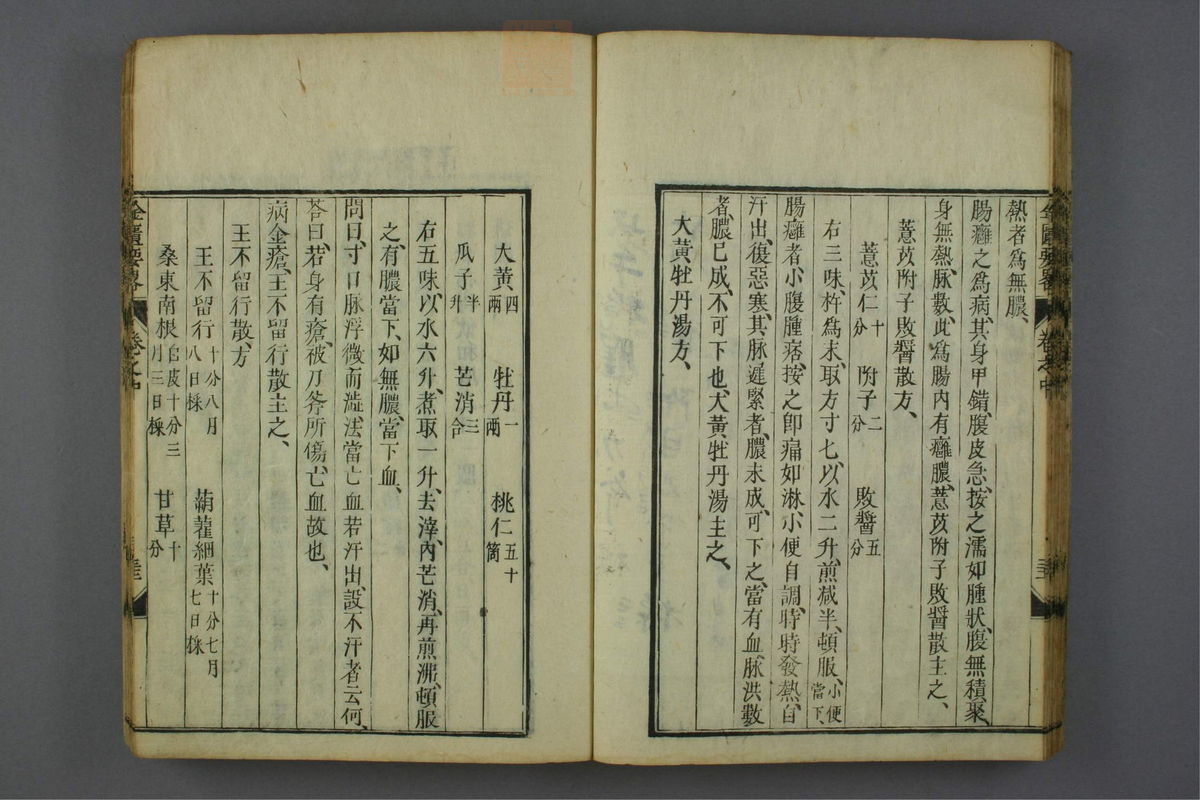 熱者為無膿、
腸癰之為病、其身甲錯、腹皮急、按之濡如腫狀、腹無積聚、
身無熱、脉數、此為腸內有癰膿、薏苡附子敗醬散主之、
薏苡附子敗醬散方、
薏苡仁十分 附子二分 敗醬五分
右三味、杵為末、取方寸匕、以水二升、煎減半、頓服、小便當下、
腸癰者、小腹腫痞、按之卽痛如淋、小便自調、時時發熱、自
汗出、復惡寒、其脉遲緊者、膿未成、可下之、當有血、脉洪數
者、膿已成、不可下也、大黃牡丹湯主之、
大黃牡丹湯方、
大黃四兩 牡丹一兩 桃仁五十箇
瓜子半升 芒消三合
右五味、以水六升、煮取一升、去滓、內芒消、再煎沸、頓服
之、有膿當下、如無膿、當下血、
問曰、寸口脉浮微而澁、法當亡血若汗出、設不汗者云何、
荅曰、若身有瘡、被刀斧所傷、亡血故也、
病金瘡、王不留行散主之、
王不留行散方
王不留行十分八月八日採 蒴藋細葉十分七月七日採
桑東南根白皮十分三月三日採 甘草十分
金匱要畧 卷之中